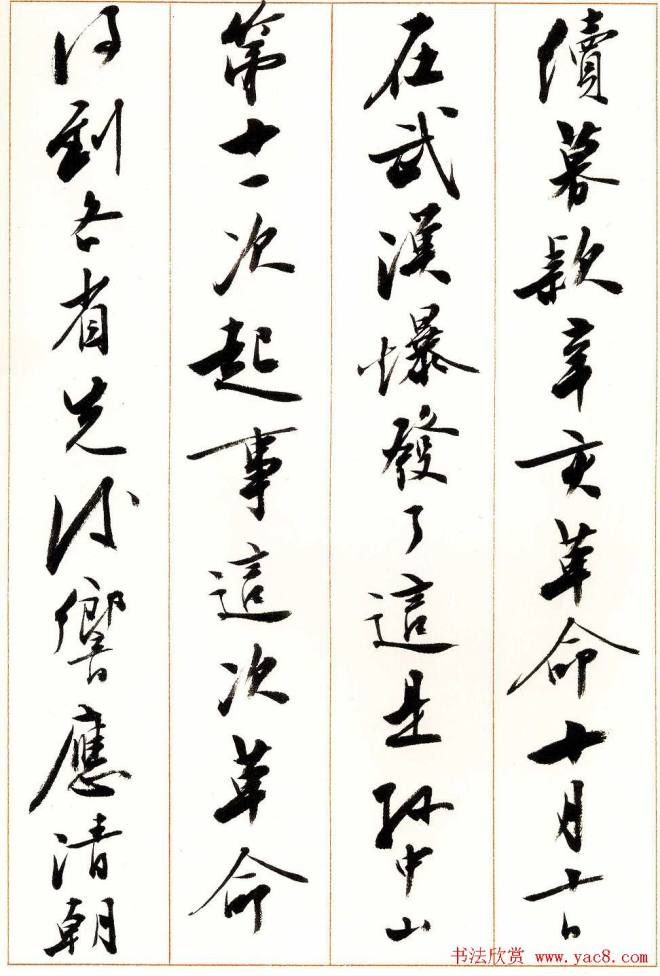 續募款辛亥革命十月十日
在武漢爆發了這是孫中山
第十一次起事這次革命
得到各省先後響應清朝
书法欣赏 www.yac8.com